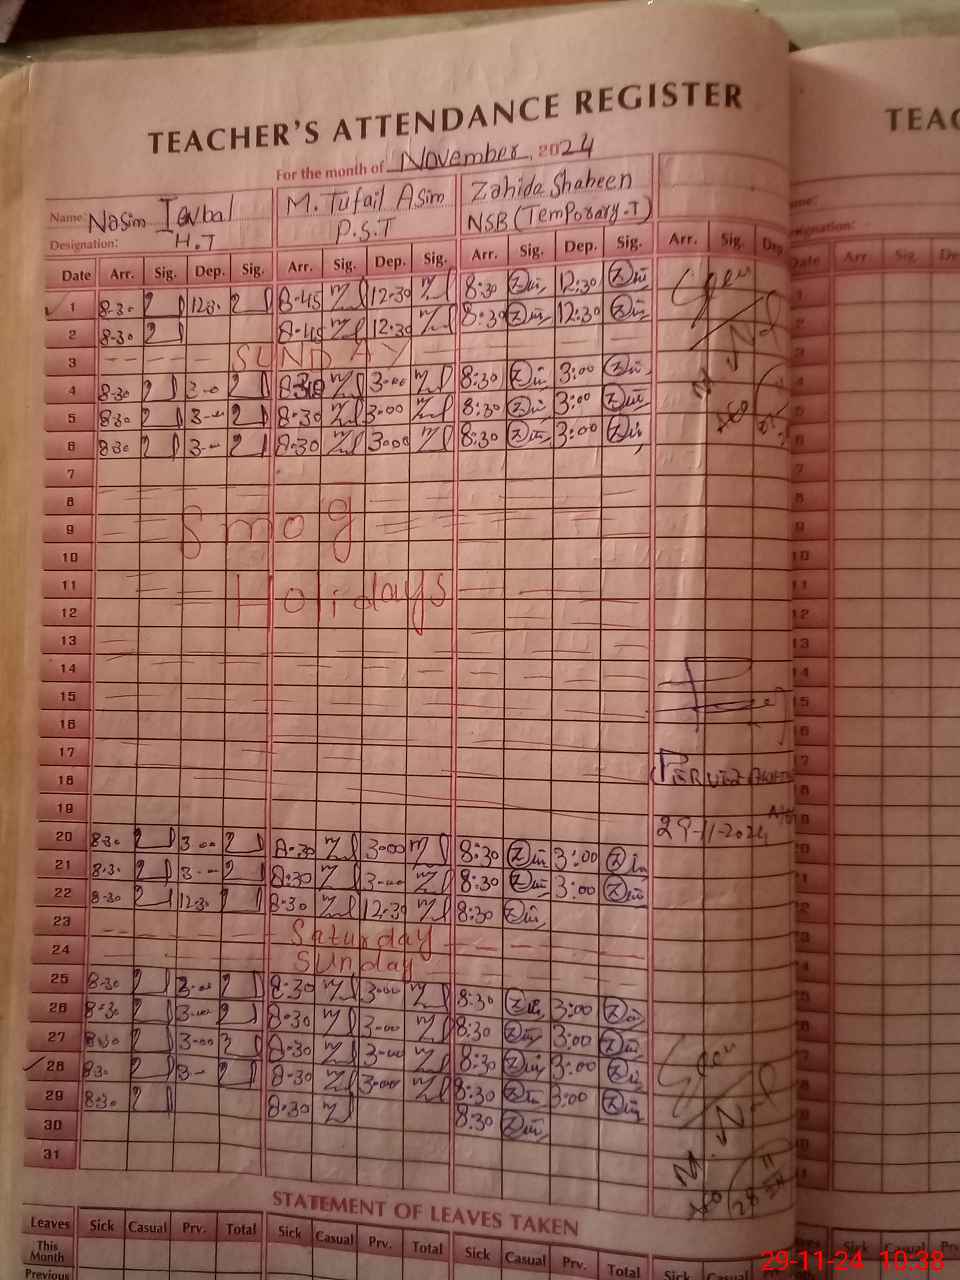 TEACHER'S ATTENDANCE REGISTER
TEAC
For the month of November, 2024
Name: Nasim Iqbal M. Tufail Asim Zahida Shaheen
Designation: H.T P.S.T NSB (Temporary.T)
Date Arr. Sig. Dep. Sig. Arr. Sig. Dep. Sig. Arr. Sig. Dep. Sig. Arr. Sig. Dep
Date Arr Sig De
1 8-30 12-30 8-45 12-30 8:30 12:30
2 8-30 8-45 12-30 8:30 12:30
3 SUNDAY
4 8-30 3-00 8-30 3-00 8:30 3:00
5 8-30 3-00 8-30 3-00 8:30 3:00
6 8-30 3-00 8-30 3-00 8:30 3:00
7
8
9 Smog
10
11 Holidays
12
13
14
15
16
17
18
19
29-11-2024
20 8-30 3-00 8-30 3-00 8:30 3:00
21 8-30 3-00 8-30 3-00 8:30 3:00
22 8-30 12-30 8-30 12-30 8:30
23 Saturday
24 Sunday
25 8-30 3-00 8-30 3-00 8:30 3:00
26 8-30 3-00 8-30 3-00 8:30 3:00
27 8-30 3-00 8-30 3-00 8:30 3:00
28 8-30 3- 8-30 3-00 8:30 3:00
29 8-30 8-30 8:30
30
31
STATEMENT OF LEAVES TAKEN
Leaves Sick Casual Prv. Total Sick Casual Prv. Total Sick Casual Prv. Total Sick Casual Prv.
This Month
Previous
29-11-24 10:38